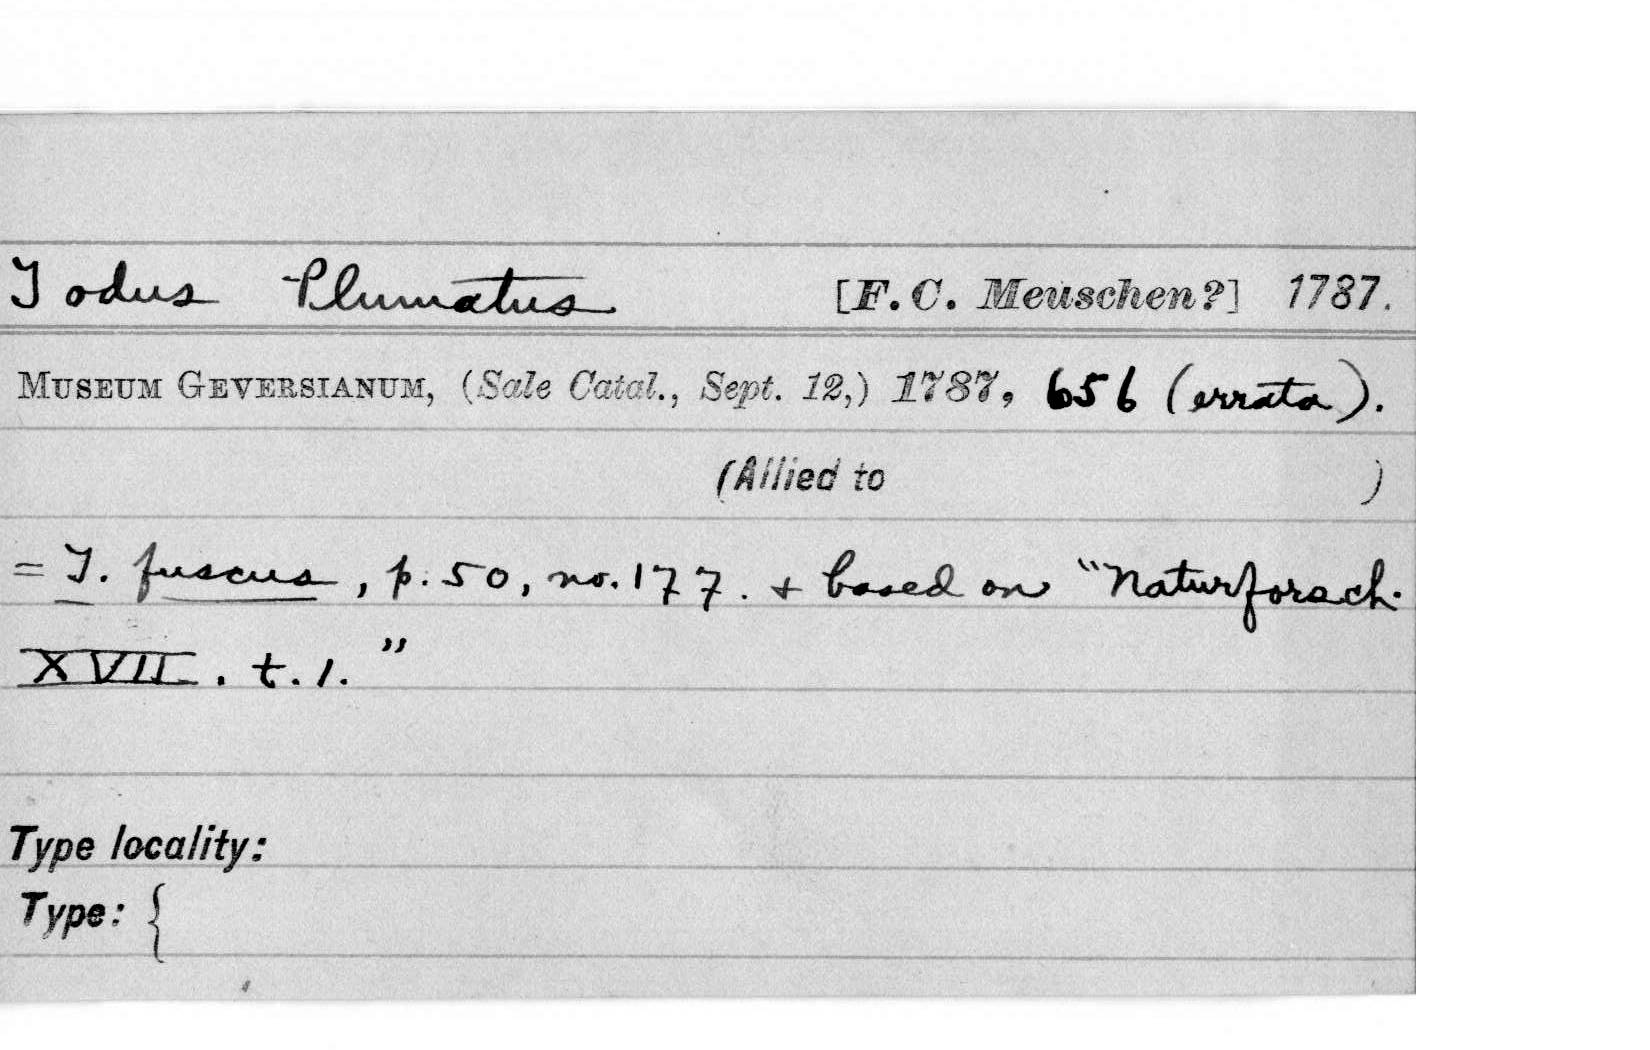 Todus Plumatus [F. C. Meuschen?] 1787.
MUSEUM GEVERSIANUM, (Sale Catal., Sept. 12,) 1787, 656 (errata).
(Allied to )
= T. fuscus, p. 50, no. 177. + based on "Naturforsch.
XVII. t. 1."
Type locality:
Type: {